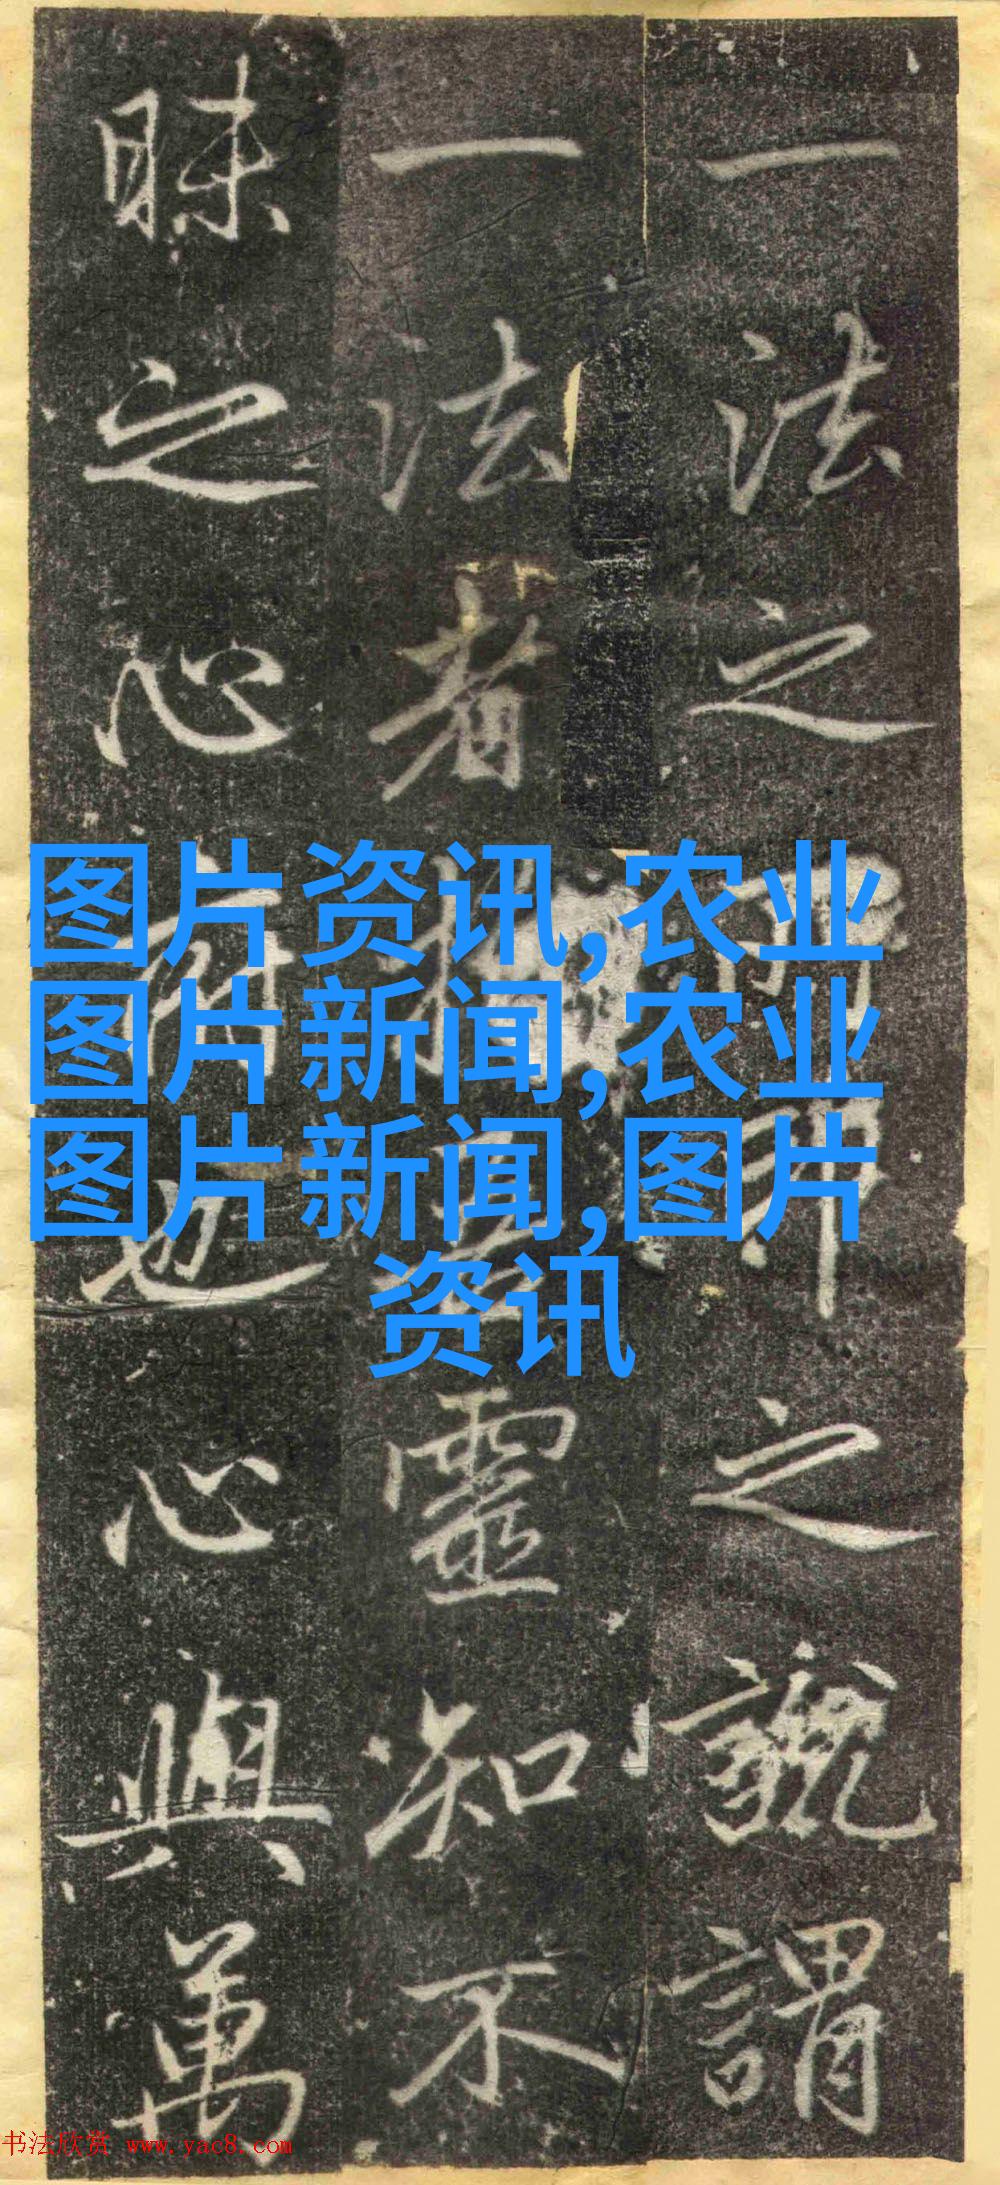 一法之之謂
一法者靈知不
昧之心也心與萬
图片资讯,农业
图片新闻,农业
图片新闻,图片
资讯
书法欣赏 www.yac8.com